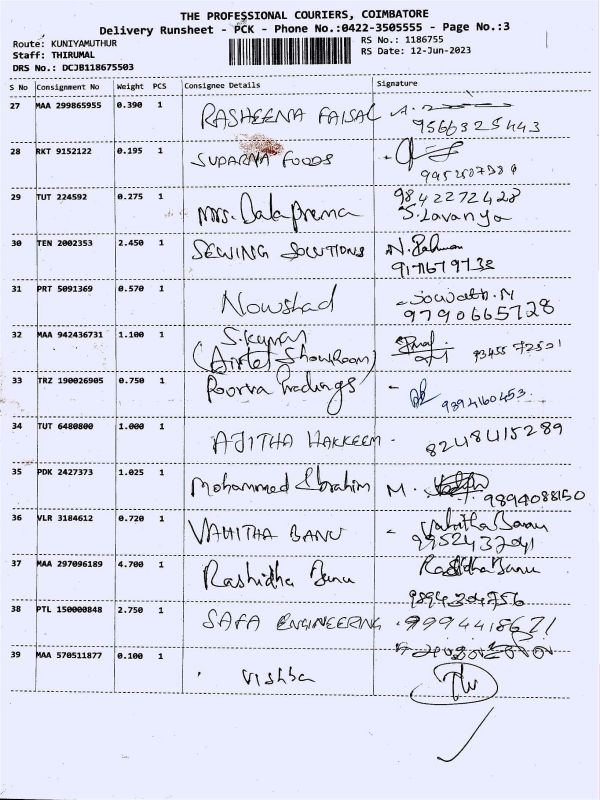 THE PROFESSIONAL COURIERS, COIMBATORE
Delivery Runsheet - PCK - Phone No.:0422-3505555 - Page No.:3
Route: KUNIYAMUTHUR
RS No.: 1186755
Staff: THIRUMAL
RS Date: 12-Jun-2023
DRS No.: DCJB118675503
S No Consignment No Weight PCS Consignee Details Signature
27 MAA 299865955 0.390 1 RASHEENA FAISAL
9566325443
28 RKT 9152122 0.195 1 SUPARNA FOODS
29 TUT 224592 0.275 1 Mrs. Dalaprema 9842272428
S. Lavanya
30 TEN 2002353 2.450 1 SEWING SOLUTIONS N. Rahman
9171679732
31 PRT 5091369 0.570 1 Nowshad
9790665728
32 MAA 942436731 1.100 1 S. Kumar
(Airtel Showroom) 9345572521
33 TRZ 190026905 0.750 1 Poorva Tradings
9894160453
34 TUT 6480800 1.000 1 AJITHA HAKKEEM - 8248415289
35 PDK 2427373 1.025 1 Mohammed Ibrahim M.
9894088150
36 VLR 3184612 0.720 1 VAHITHA BANU - Vahitha Banu
9952437041
37 MAA 297096189 4.700 1 Rashidha Banu Rashidha Banu
9894204756
38 PTL 150000848 2.750 1 SAFA ENGINEERING 9994418671
39 MAA 570511877 0.100 1 Vishba